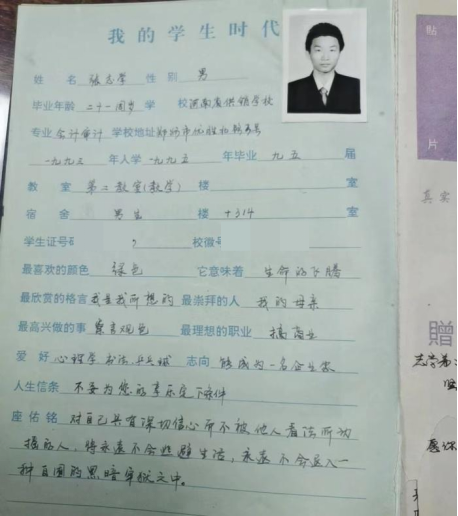 我的学生时代
姓 名 张志学 性 别 男
毕业年龄 二十一周岁 学 校 河南省供销学校
专业 会计审计 学校地址 郑州市优胜北路
一九九三 年入学 一九九五 年毕业 九五 届
教 室 第二教室(教学) 楼 室
宿 舍 男生 楼 #314 室
学生证号 校徽号
最喜欢的颜色 绿色 它意味着 生命的
最欣赏的格言 我是我所想的 最崇拜的人 我的母亲
最高兴做的事 察言观色 最理想的职业 搞商业
爱 好 心理学 书法 乒乓球 志向 能成为一名企业家
人生信条 不要为您的享乐定下条件
座佑铭 对自己具有深切信心而不被他人看法所动
摇的人,将永远不会逃避生活,永远不会进入一
种自围的黑暗牢狱之中。
贴
片
真实
赠
愿你